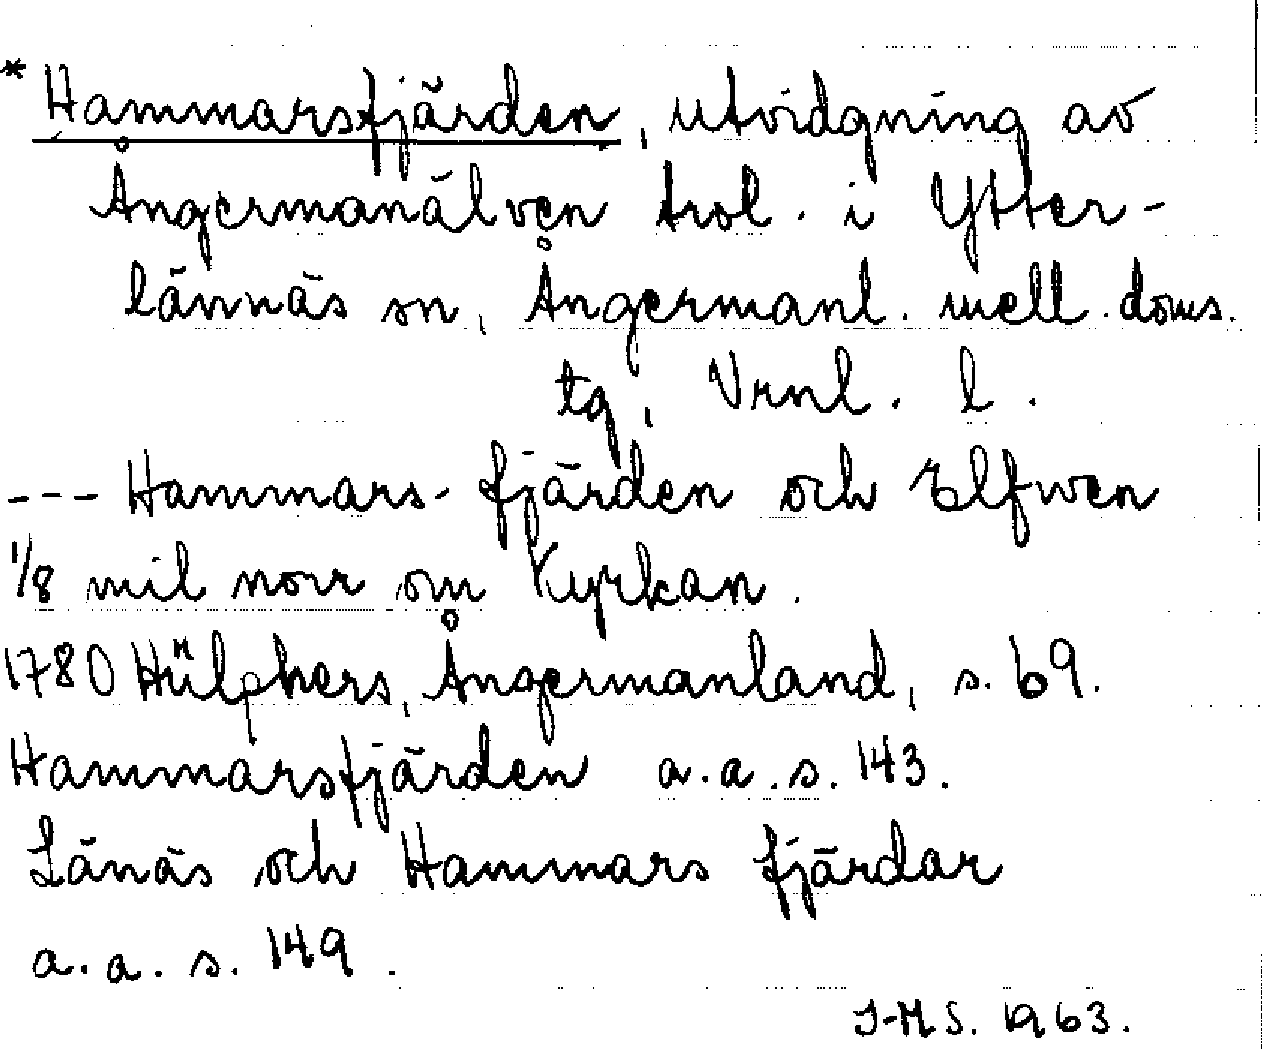 * Hammarsfjärden, utvidgning av
Ångermanälven trol. i Ytter-
lännäs sn, Ångermanl. mell. doms.
tg, Vrnl. l.
--- Hammars-fjärden och Elfwen
1/8 mil norr om Kyrkan.
1780 Hülphers, Ångermanland, s. 69.
Hammarsfjärden a.a. s. 143.
Länäs och Hammars fjärdar
a.a. s. 149.
I-M S. 1963.